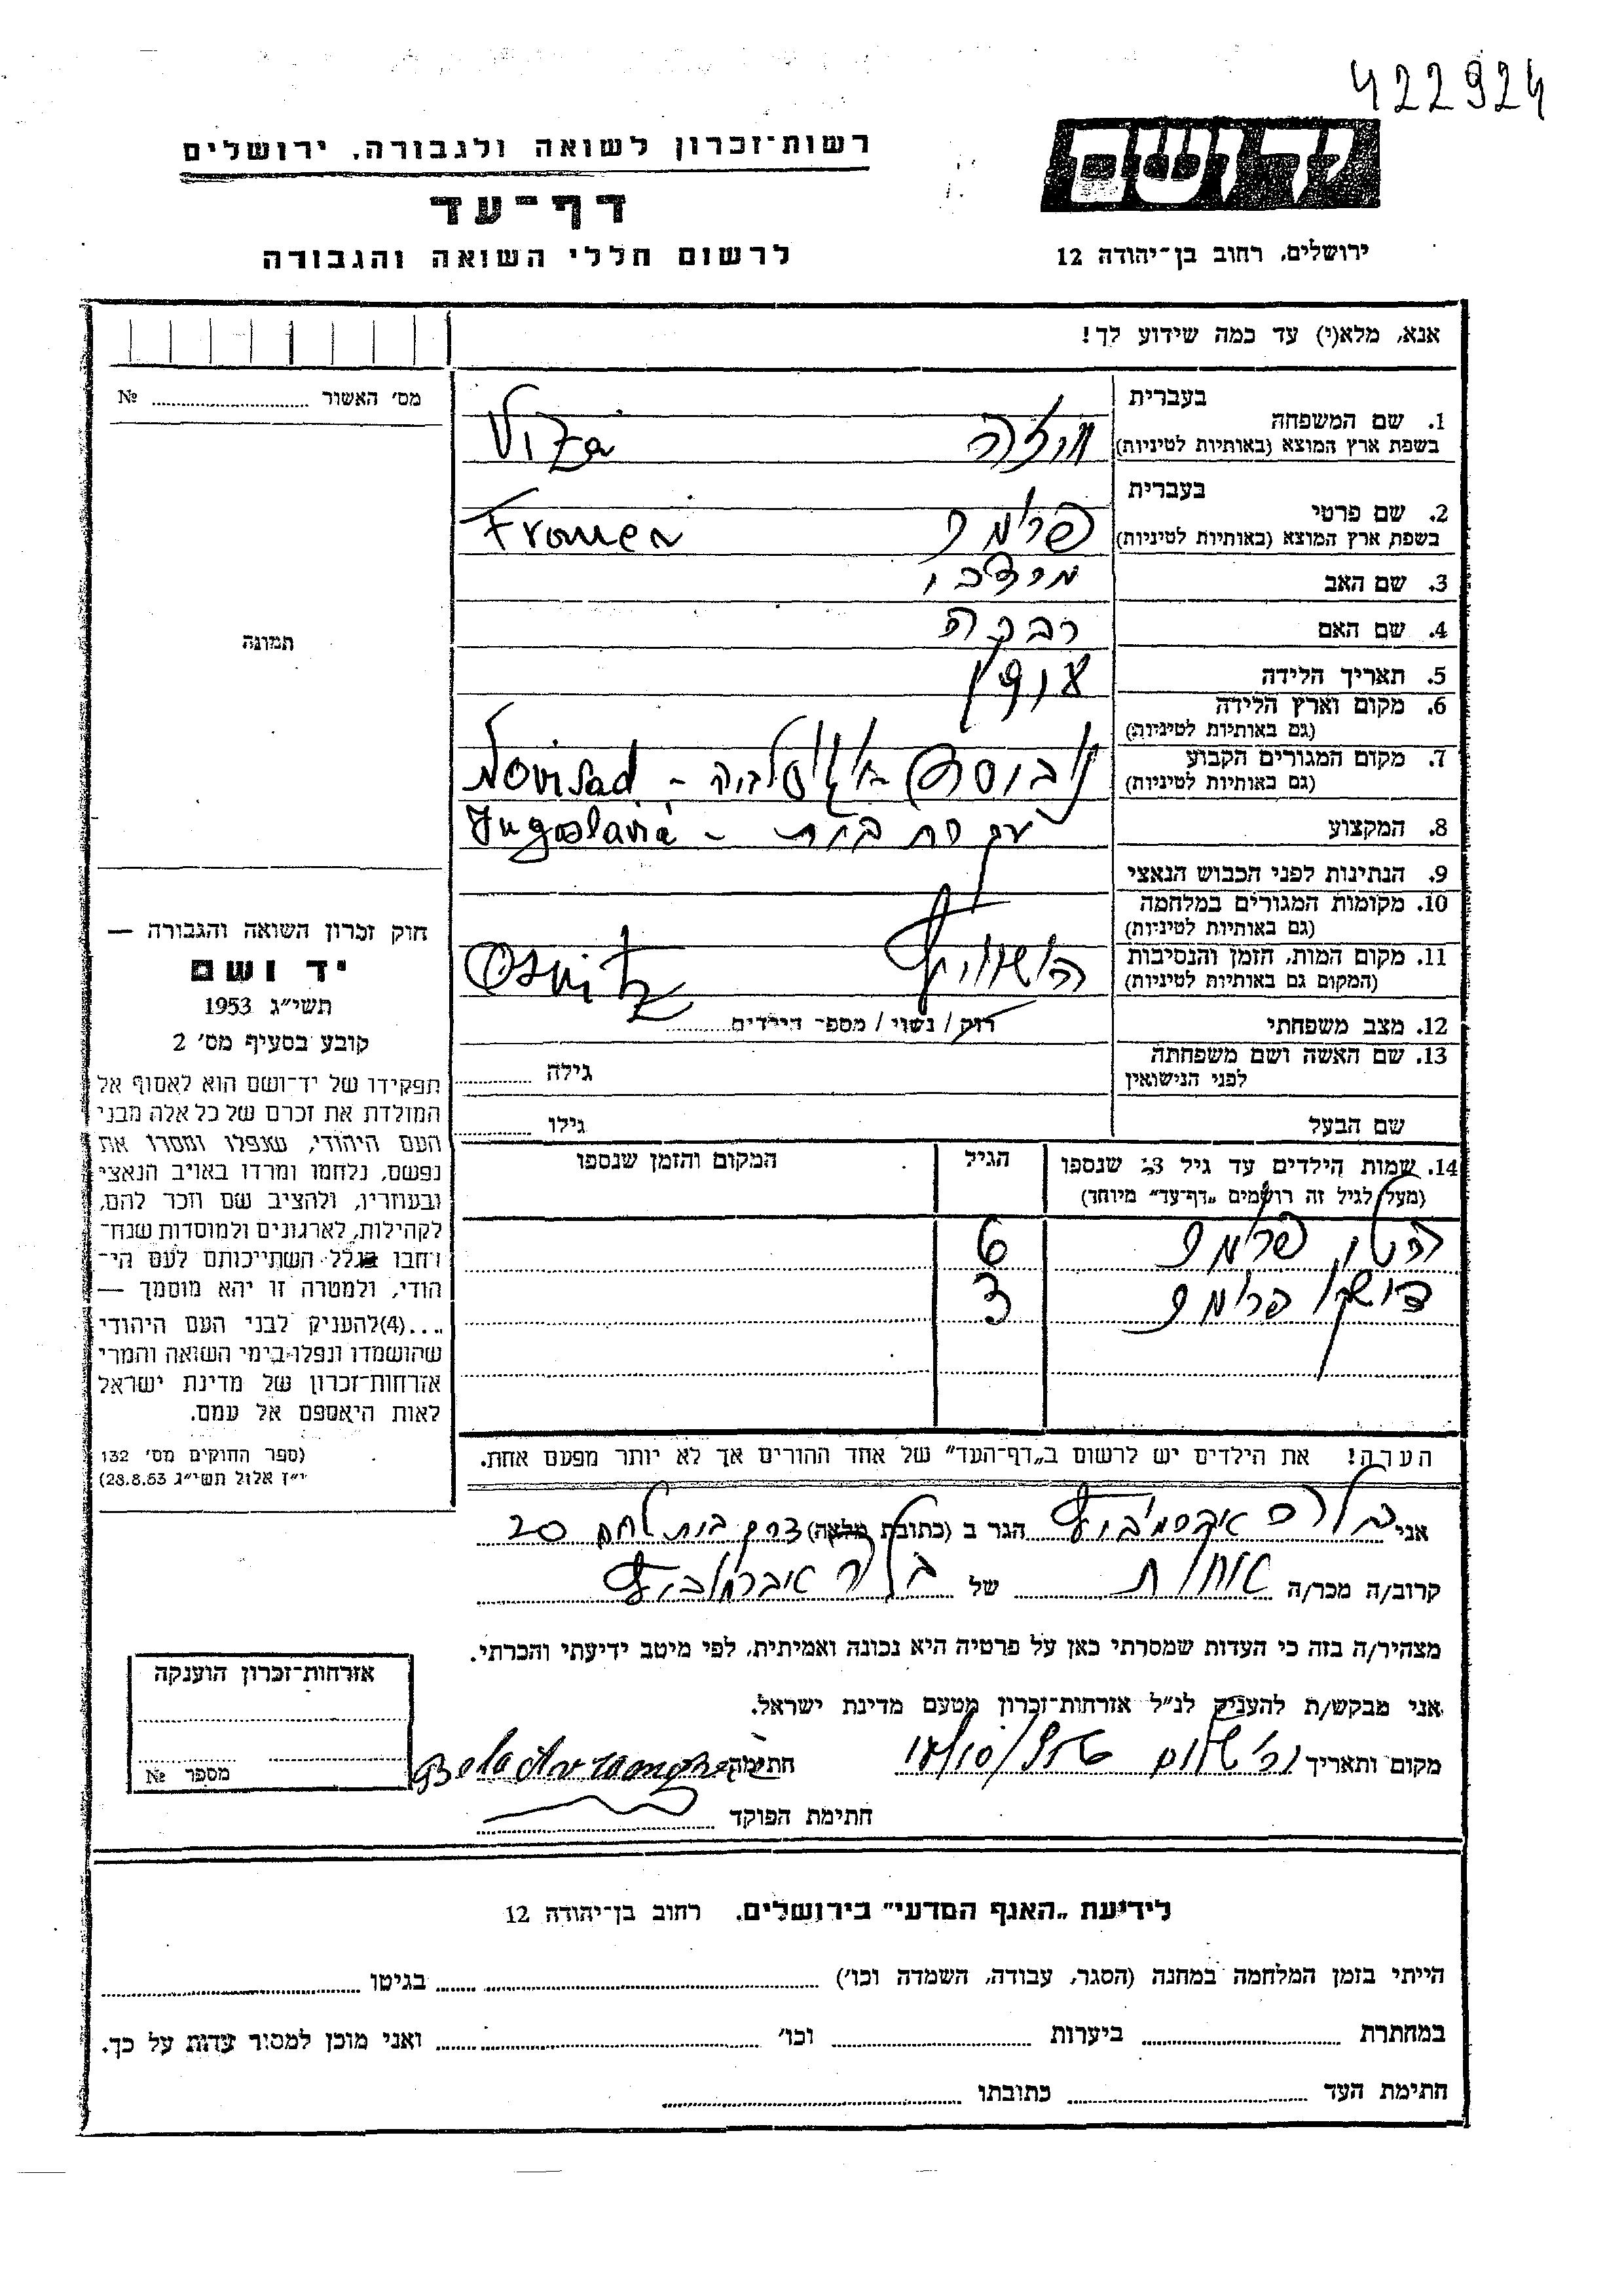 422924
רשות־זכרון לשואה ולגבורה, ירושלים
דף־עד
לרשום חללי השואה והגבורה
ידושם
ירושלים, רחוב בן־יהודה 12
אנא, מלא(י) עד כמה שידוע לך!
מס' האשור № 
תמונה
1. שם המשפחה
בעברית
בשפת ארץ המוצא (באותיות לטיניות)
ויזה Viza
2. שם פרטי
בעברית
בשפת ארץ המוצא (באותיות לטיניות)
3. שם האב מרדכי
4. שם האם רבקה
5. תאריך הלידה
6. מקום וארץ הלידה
(גם באותיות לטיניות)
7. מקום המגורים הקבוע
(גם באותיות לטיניות)
Novisad -
8. המקצוע עקרת בית - Jugoslavia
9. הנתינות לפני הכבוש הנאצי
10. מקומות המגורים במלחמה
(גם באותיות לטיניות)
11. מקום המות, הזמן והנסיבות
(המקום גם באותיות לטיניות)
Osvitz
12. מצב משפחתי רוק / נשוי / מספר הילדים
13. שם האשה ושם משפחתה
לפני הנישואין
גילה
שם הבעל גילו
14. שמות הילדים עד גיל 13 שנספו
(מעל לגיל זה רושמים „דף־עד” מיוחד)
הגיל
המקום והזמן שנספו
6
3
חוק זכרון השואה והגבורה —
יד ושם
תשי״ג 1953
קובע בסעיף מס' 2
תפקידו של יד־ושם הוא לאסוף אל
המולדת את זכרם של כל אלה מבני
העם היהודי, שנפלו ומסרו את
נפשם, נלחמו ומרדו באויב הנאצי
ובעוזריו, ולהציב שם וזכר להם,
לקהילות, לארגונים ולמוסדות שנח־
רחבו בגלל השתייכותם לעם הי־
הודי, ולמטרה זו יהא מוסמך —
...(4)להעניק לבני העם היהודי
שהושמדו ונפלו בימי השואה והמרי
אזרחות־זכרון של מדינת ישראל
לאות היאספם אל עמם.
(ספר החוקים מס' 132
י״ז אלול תשי״ג 28.8.53)
הערה! את הילדים יש לרשום ב„דף־העד” של אחד ההורים אך לא יותר מפעם אחת.
אני הגר ב (כתובת מלאה) דרך בית לחם 20
קרוב/ה מכר/ה אחות של
מצהיר/ה בזה כי העדות שמסרתי כאן על פרטיה היא נכונה ואמיתית, לפי מיטב ידיעתי והכרתי.
אני מבקש/ת להעניק לנ״ל אזרחות־זכרון מטעם מדינת ישראל.
מקום ותאריך חתימה
חתימת הפוקד
אזרחות־זכרון הוענקה
מספר №
לידיעת „האגף המדעי” בירושלים, רחוב בן־יהודה 12
הייתי בזמן המלחמה במחנה (הסגר, עבודה, השמדה וכו') בגיטו
במחתרת ביערות וכו' ואני מוכן למסור עדות על כך.
חתימת העד כתובתו